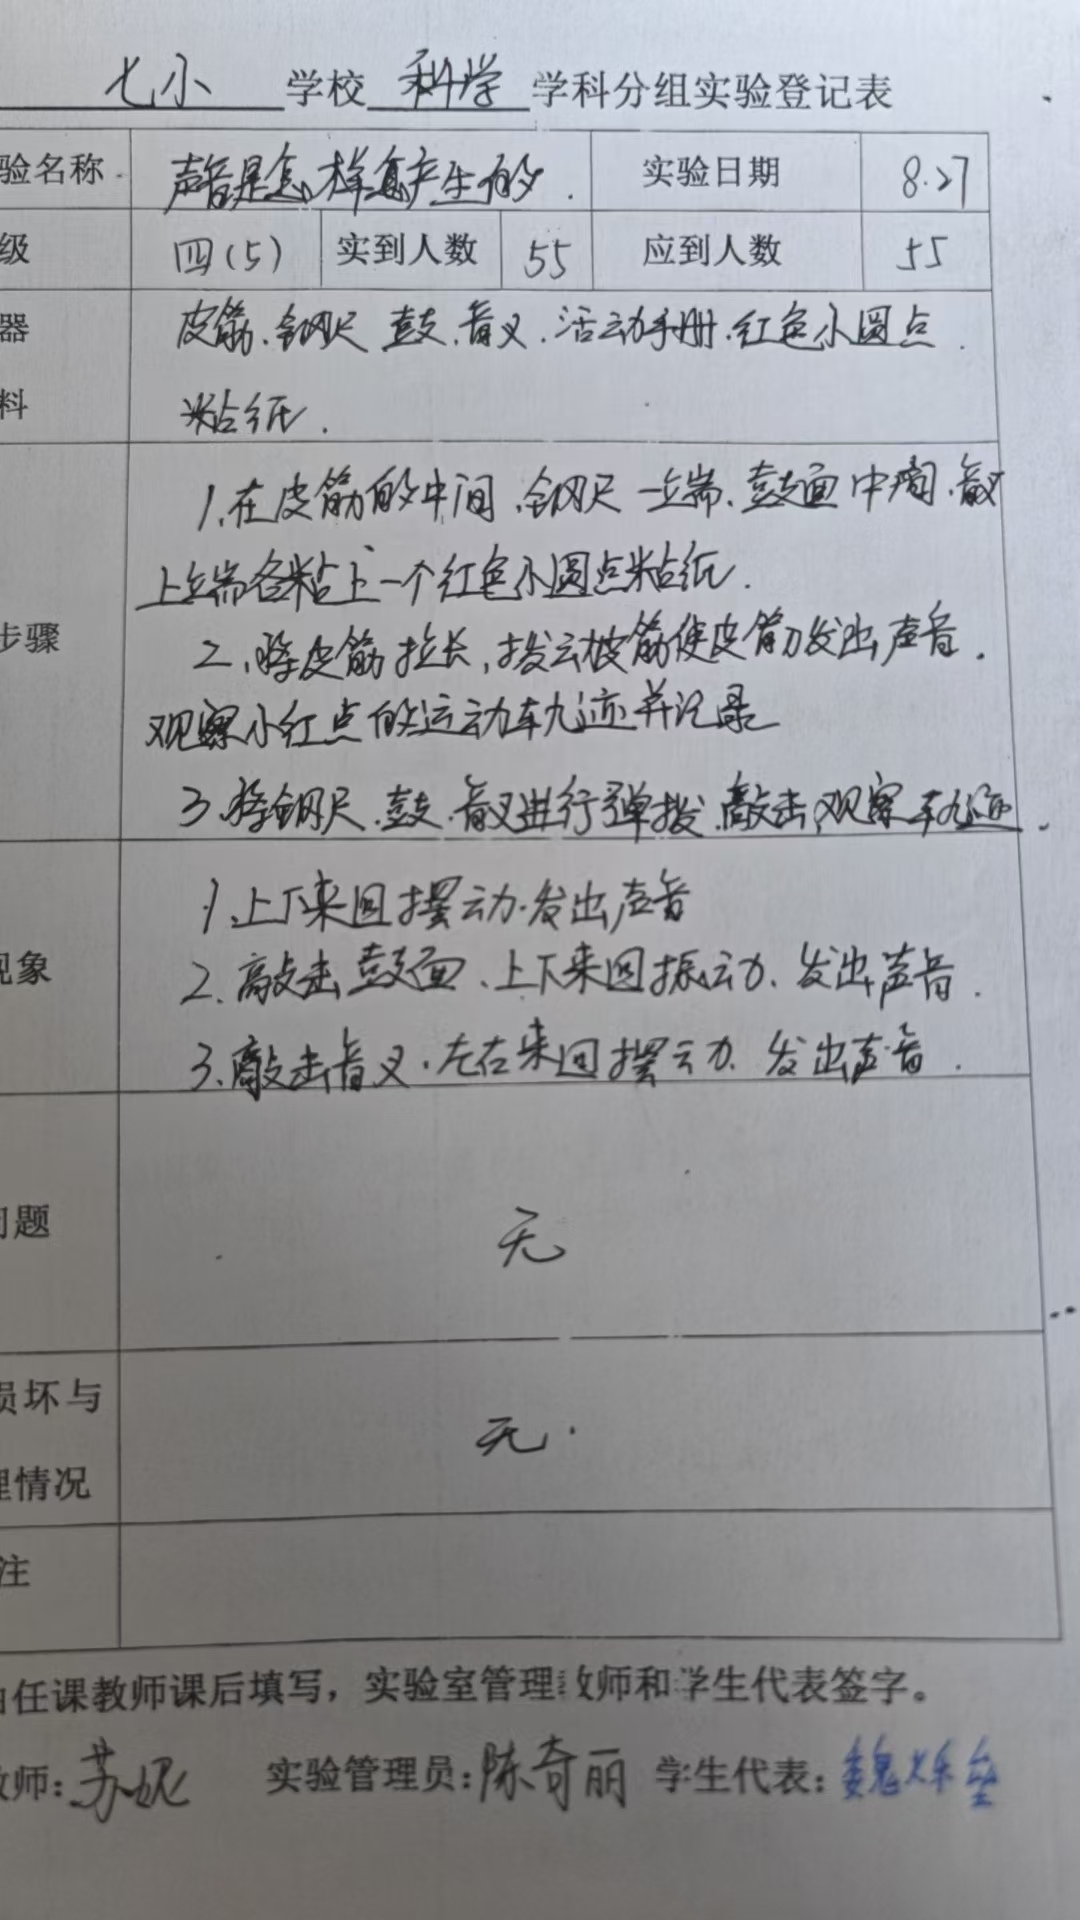 七小 学校 科学 学科分组实验登记表
验名称 声音是怎样产生的. 实验日期 8.27
级 四(5) 实到人数 55 应到人数 55
器 皮筋、钢尺 鼓、音叉、活动手册、红色小圆点
料 粘纸.
1、在皮筋的中间、钢尺一端、鼓面中间、音叉
上端各粘上一个红色小圆点粘纸.
步骤 2、将皮筋拉长,拨动皮筋使皮筋发出声音.
观察小红点的运动轨迹并记录
3、将钢尺、鼓、音叉进行弹拨、敲击,观察轨迹.
1、上下来回摆动、发出声音
现象 2、敲击鼓面、上下来回振动、发出声音.
3、敲击音叉、左右来回摆动、发出声音.
问题 无
损坏与
无.
理情况
注
由任课教师课后填写，实验室管理教师和学生代表签字。
教师: 苏妮 实验管理员: 陈奇丽 学生代表: 魏